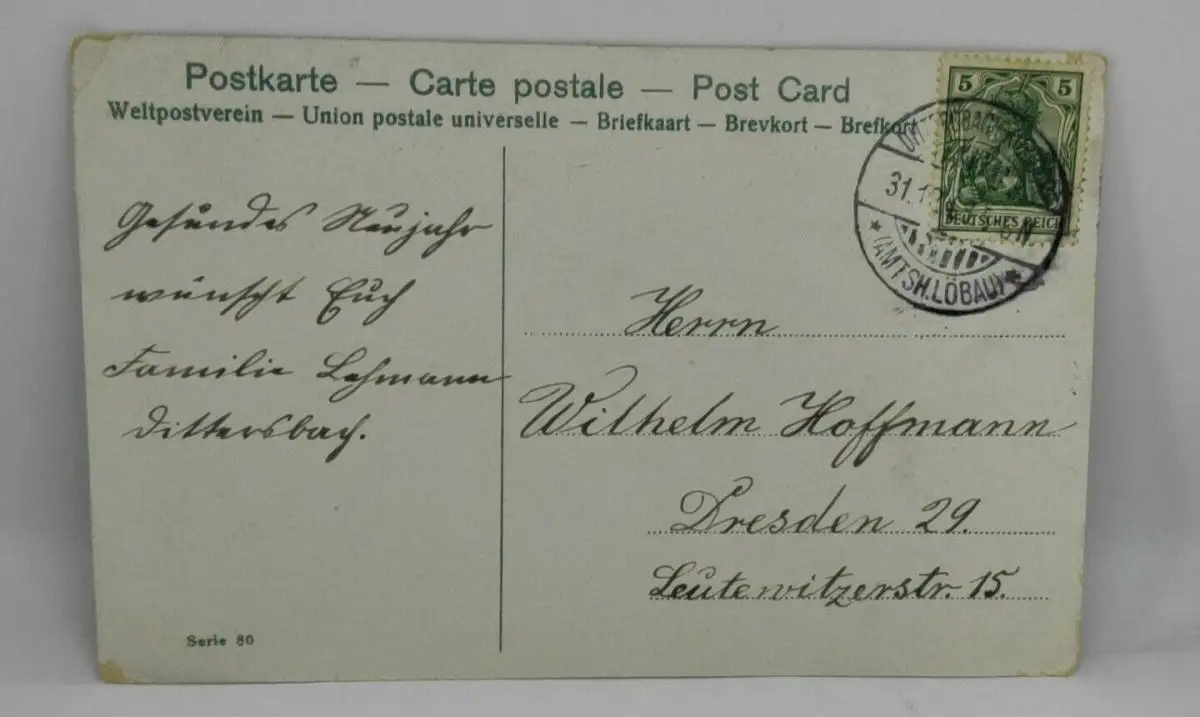 Postkarte — Carte postale — Post Card
Weltpostverein — Union postale universelle — Briefkaart — Brevkort — Brefkort
5 5
DEUTSCHES REICH
31.12
(AMTSH. LÖBAU)
Gesundes Neujahr
wünscht Euch
Familie Lehmann
Dittersbach.
Herrn
Wilhelm Hoffmann
Dresden 29.
Leutewitzerstr. 15.
Serie 80